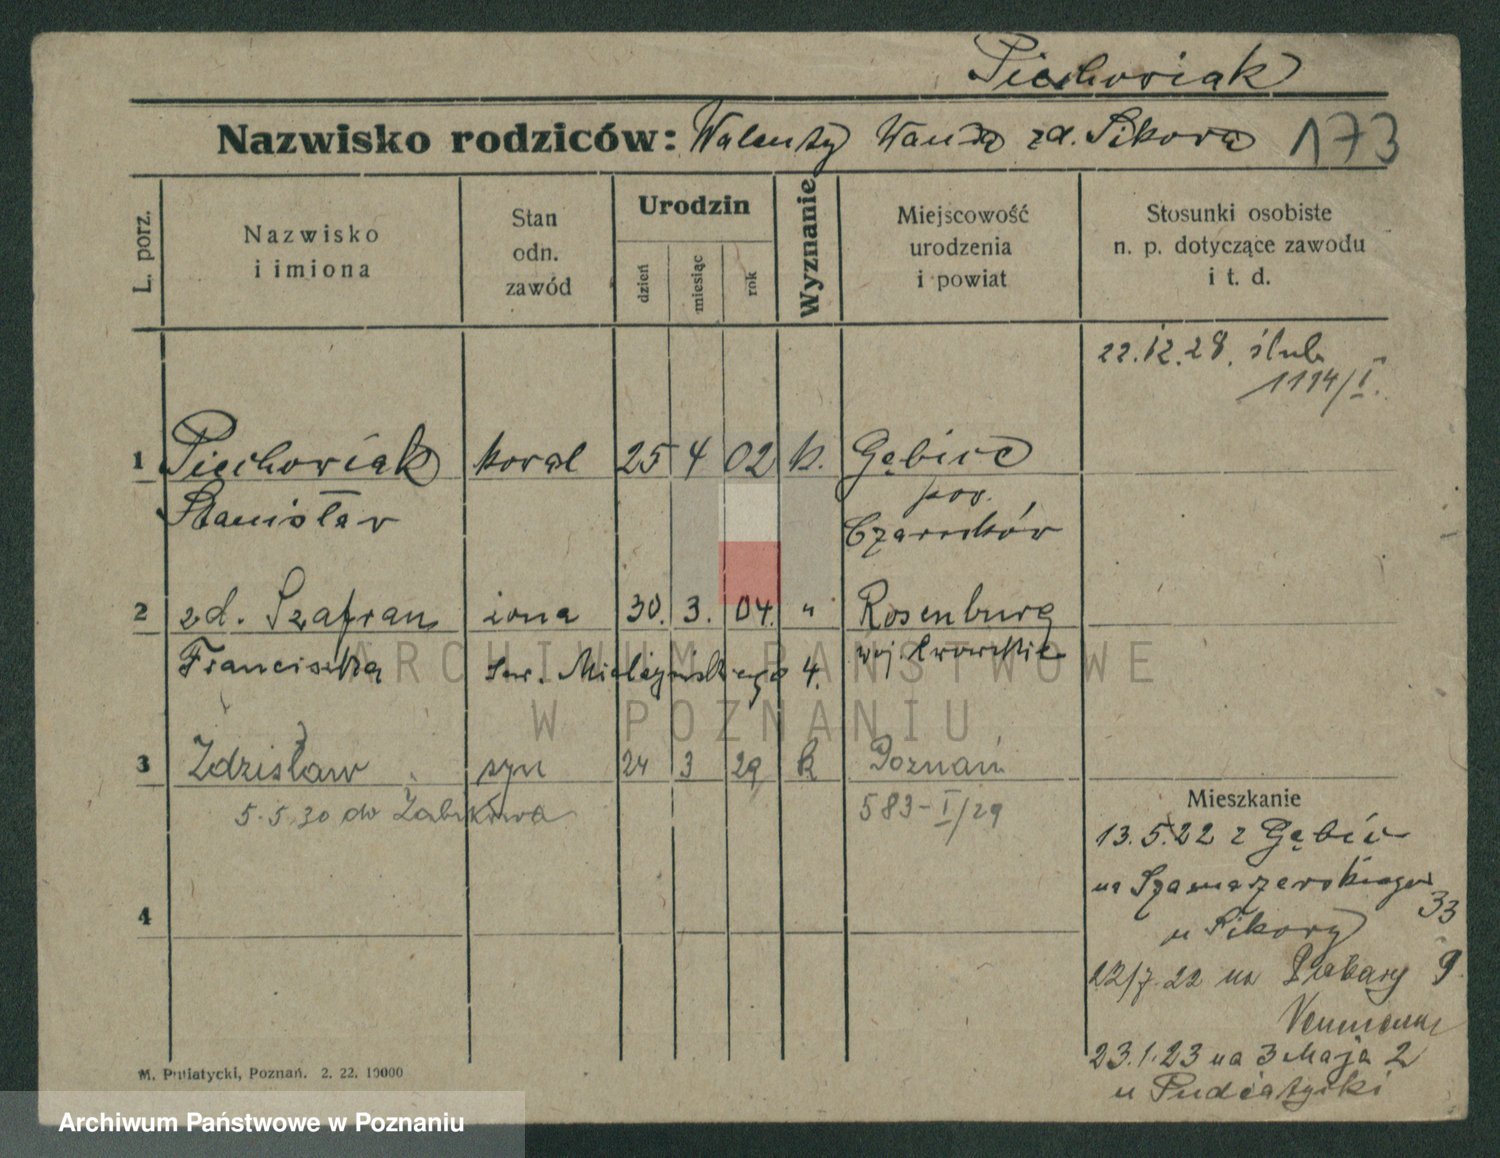 Piechowiak
Nazwisko rodziców: Walenty Wanda zd. Sikora 173
L. porz.
Nazwisko i imiona
Stan odn. zawód
Urodzin
dzień
miesiąc
rok
Wyznanie
Miejscowość urodzenia i powiat
Stosunki osobiste n. p. dotyczące zawodu i t. d.
22.12.28. ślub
1194/I.
1 Piechowiak kowal 25 4 02 k. Gębice
Stanisław pow.
Czarnków
2 zd. Szafran żona 30. 3. 04. " Rosenburg
Franciszka Sew. Mielżyńskiego 4. woj. Lwowskie
3 Zdzisław syn 24 3 29 k Poznań
5.5.30 do Żabikowa 583-I/29
4
Mieszkanie
13.5.22 z Gębic
na Szamarzewskiego 33
u Sikory
22/7.22 na Piekary 9.
23.1.23 na 3 Maja 2
u Pudiatycki
M. Putiatycki, Poznań. 2. 22. 10000
ARCHIWUM PAŃSTWOWE
W POZNANIU
Archiwum Państwowe w Poznaniu